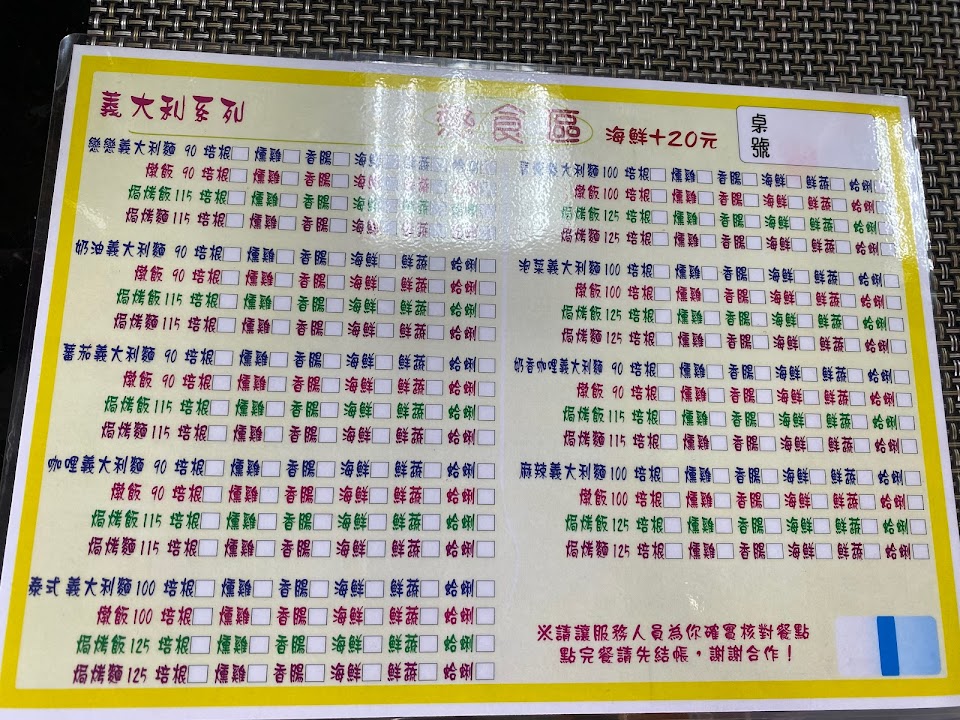 義大利系列
食區
海鮮+20元
桌號
戀戀義大利麵 90 培根 燻雞 香腸 海鮮 鮮蔬
燉飯 90 培根 燻雞 香腸 海鮮
焗烤飯 115 培根 燻雞 香腸 海鮮 鮮蔬
焗烤麵 115 培根 燻雞 香腸 海鮮 鮮蔬 蛤蜊
奶油義大利麵 90 培根 燻雞 香腸 海鮮 鮮蔬 蛤蜊
燉飯 90 培根 燻雞 香腸 海鮮 鮮蔬 蛤蜊
焗烤飯 115 培根 燻雞 香腸 海鮮 鮮蔬 蛤蜊
焗烤麵 115 培根 燻雞 香腸 海鮮 鮮蔬 蛤蜊
蕃茄義大利麵 90 培根 燻雞 香腸 海鮮 鮮蔬 蛤蜊
燉飯 90 培根 燻雞 香腸 海鮮 鮮蔬 蛤蜊
焗烤飯 115 培根 燻雞 香腸 海鮮 鮮蔬 蛤蜊
焗烤麵 115 培根 燻雞 香腸 海鮮 鮮蔬 蛤蜊
咖哩義大利麵 90 培根 燻雞 香腸 海鮮 鮮蔬 蛤蜊
燉飯 90 培根 燻雞 香腸 海鮮 鮮蔬 蛤蜊
焗烤飯 115 培根 燻雞 香腸 海鮮 鮮蔬 蛤蜊
焗烤麵 115 培根 燻雞 香腸 海鮮 鮮蔬 蛤蜊
泰式義大利麵 100 培根 燻雞 香腸 海鮮 鮮蔬 蛤蜊
燉飯 100 培根 燻雞 香腸 海鮮 鮮蔬 蛤蜊
焗烤飯 125 培根 燻雞 香腸 海鮮 鮮蔬 蛤蜊
焗烤麵 125 培根 燻雞 香腸 海鮮 鮮蔬 蛤蜊
義大利麵 100 培根 燻雞 香腸 海鮮 鮮蔬 蛤蜊
燉飯 100 培根 燻雞 香腸 海鮮 鮮蔬 蛤蜊
焗烤飯 125 培根 燻雞 香腸 海鮮 鮮蔬 蛤蜊
焗烤麵 125 培根 燻雞 香腸 海鮮 鮮蔬 蛤蜊
泡菜義大利麵 100 培根 燻雞 香腸 海鮮 鮮蔬 蛤蜊
燉飯 100 培根 燻雞 香腸 海鮮 鮮蔬 蛤蜊
焗烤飯 125 培根 燻雞 香腸 海鮮 鮮蔬 蛤蜊
焗烤麵 125 培根 燻雞 香腸 海鮮 鮮蔬 蛤蜊
奶香咖哩義大利麵 90 培根 燻雞 香腸 海鮮 鮮蔬 蛤蜊
燉飯 90 培根 燻雞 香腸 海鮮 鮮蔬 蛤蜊
焗烤飯 115 培根 燻雞 香腸 海鮮 鮮蔬 蛤蜊
焗烤麵 115 培根 燻雞 香腸 海鮮 鮮蔬 蛤蜊
麻辣義大利麵 100 培根 燻雞 香腸 海鮮 鮮蔬 蛤蜊
燉飯 100 培根 燻雞 香腸 海鮮 鮮蔬 蛤蜊
焗烤飯 125 培根 燻雞 香腸 海鮮 鮮蔬 蛤蜊
焗烤麵 125 培根 燻雞 香腸 海鮮 鮮蔬 蛤蜊
※請讓服務人員為你確實核對餐點
點完餐請先結帳，謝謝合作！